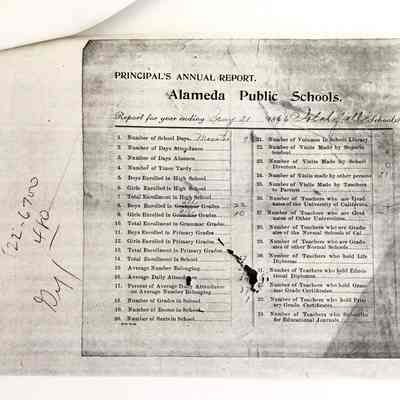 PRINCIPAL'S ANNUAL REPORT.
Alameda Public Schools.
Report for year ending 21 Total of all Schools
1. Number of School Days,
2. Number of Days Attendance
3. Number of Days Absence
4. Number of Times Tardy
5. Boys Enrolled in High School
6. Girls Enrolled in High School
7. Total Enrollment in High School
8. Boys Enrolled in Grammar Grades 22
9. Girls Enrolled in Grammar Grades 10
10. Total Enrollment in Grammar Grades
11. Boys Enrolled in Primary Grades
12. Girls Enrolled in Primary Grades
13. Total Enrollment in Primary Grades
14. Total Enrollment in School
15. Average Number Belonging
16. Average Daily Attendance
17. Percent of Average Daily Attendance
on Average Number Belonging
18. Number of Grades in School
19. Number of Rooms in School
20. Number of Seats in School
21. Number of Volumes in School Library
22. Number of Visits Made by Superin-
tendent
23. Number of Visits Made by School
Directors
24. Number of Visits made by other persons
25. Number of Visits Made by Teachers
to Parents
26. Number of Teachers who are Grad-
uates of the University of California
27. Number of Teachers who are Grad-
uates of Other Universities
28. Number of Teachers who are Gradu-
ates of the Normal Schools of Cal
29. Number of Teachers who are Gradu-
ates of other Normal Schools
30. Number of Teachers who hold Life
Diplomas
31. Number of Teachers who hold Educa-
tional Diplomas
32. Number of Teachers who hold Gram-
mar Grade Certificates
33. Number of Teachers who hold Pri-
mary Grade Certificates
34. Number of Teachers who Subscribe
for Educational Journals
'22-6700